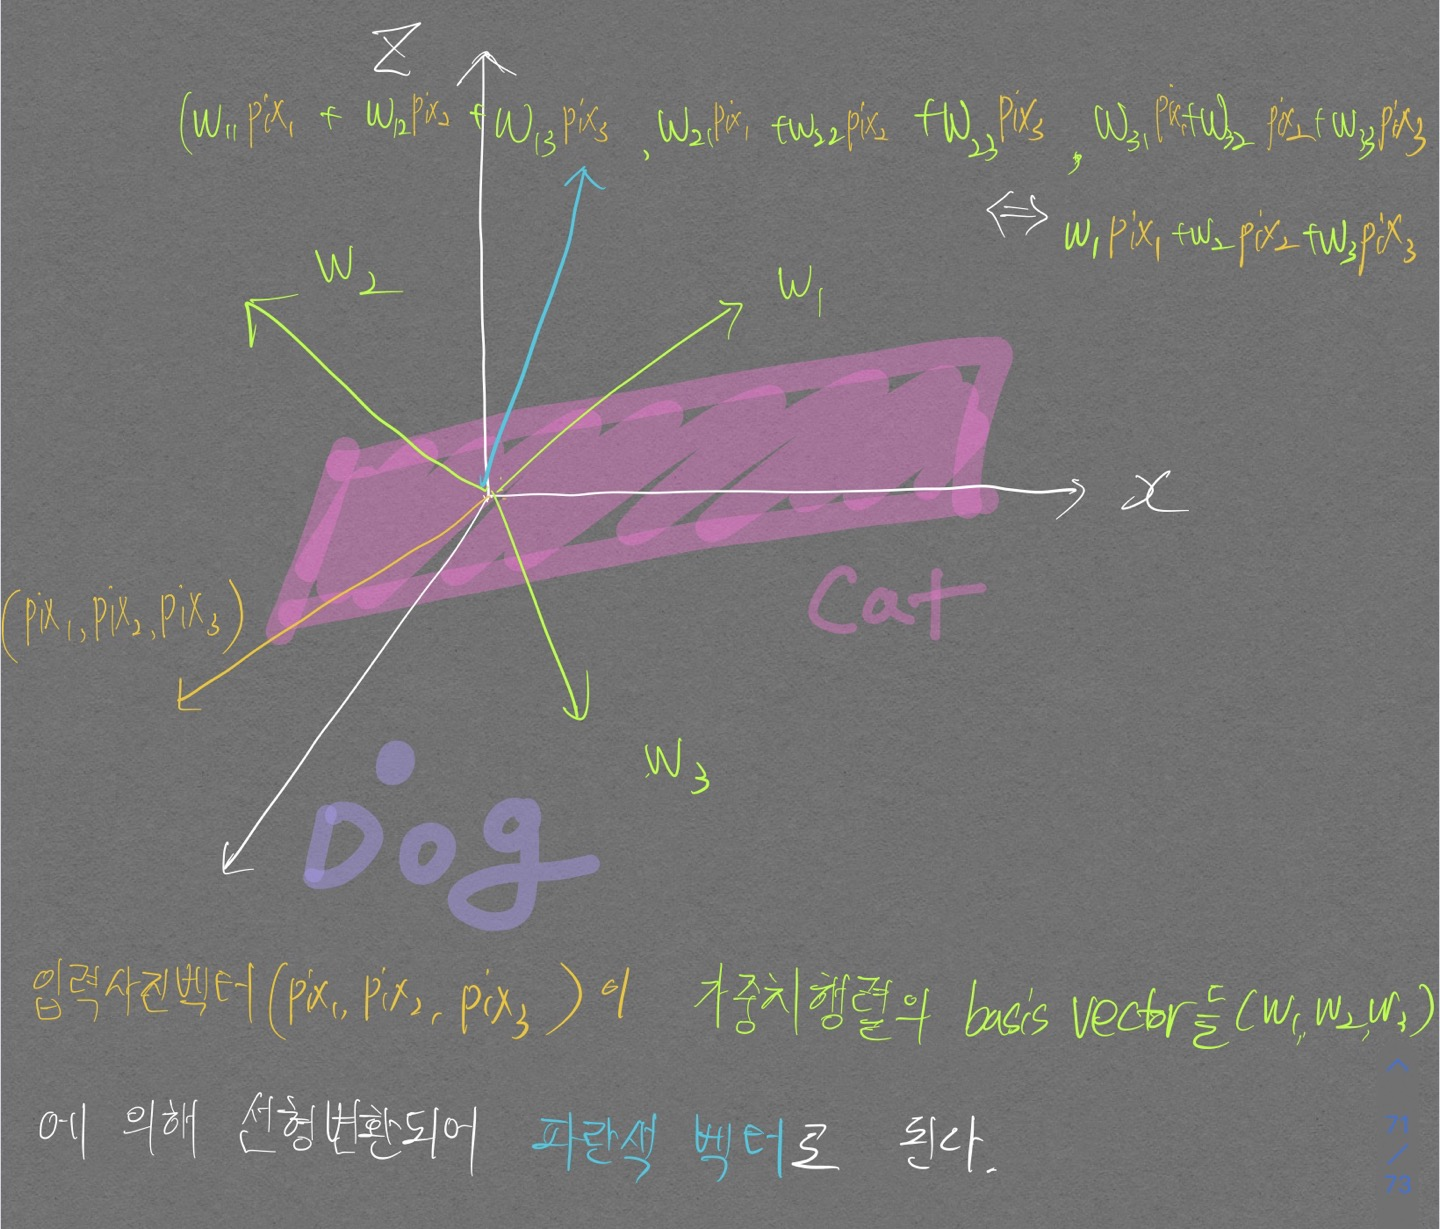 Z
(W₁₁pix₁ + W₁₂pix₂ + W₁₃pix₃ , W₂₁pix₁ + W₂₂pix₂ + W₂₃pix₃ , W₃₁pix₁ + W₃₂pix₂ + W₃₃pix₃
⇔ W₁pix₁ + W₂pix₂ + W₃pix₃
W₂
W₁
x
(pix₁, pix₂, pix₃)
Cat
W₃
Dog
입력사진벡터(pix₁, pix₂, pix₃)이 가중치행렬의 basis vector들(W₁, W₂, W₃)
에 의해 선형변환되어 파란색 벡터로 된다.
71/73